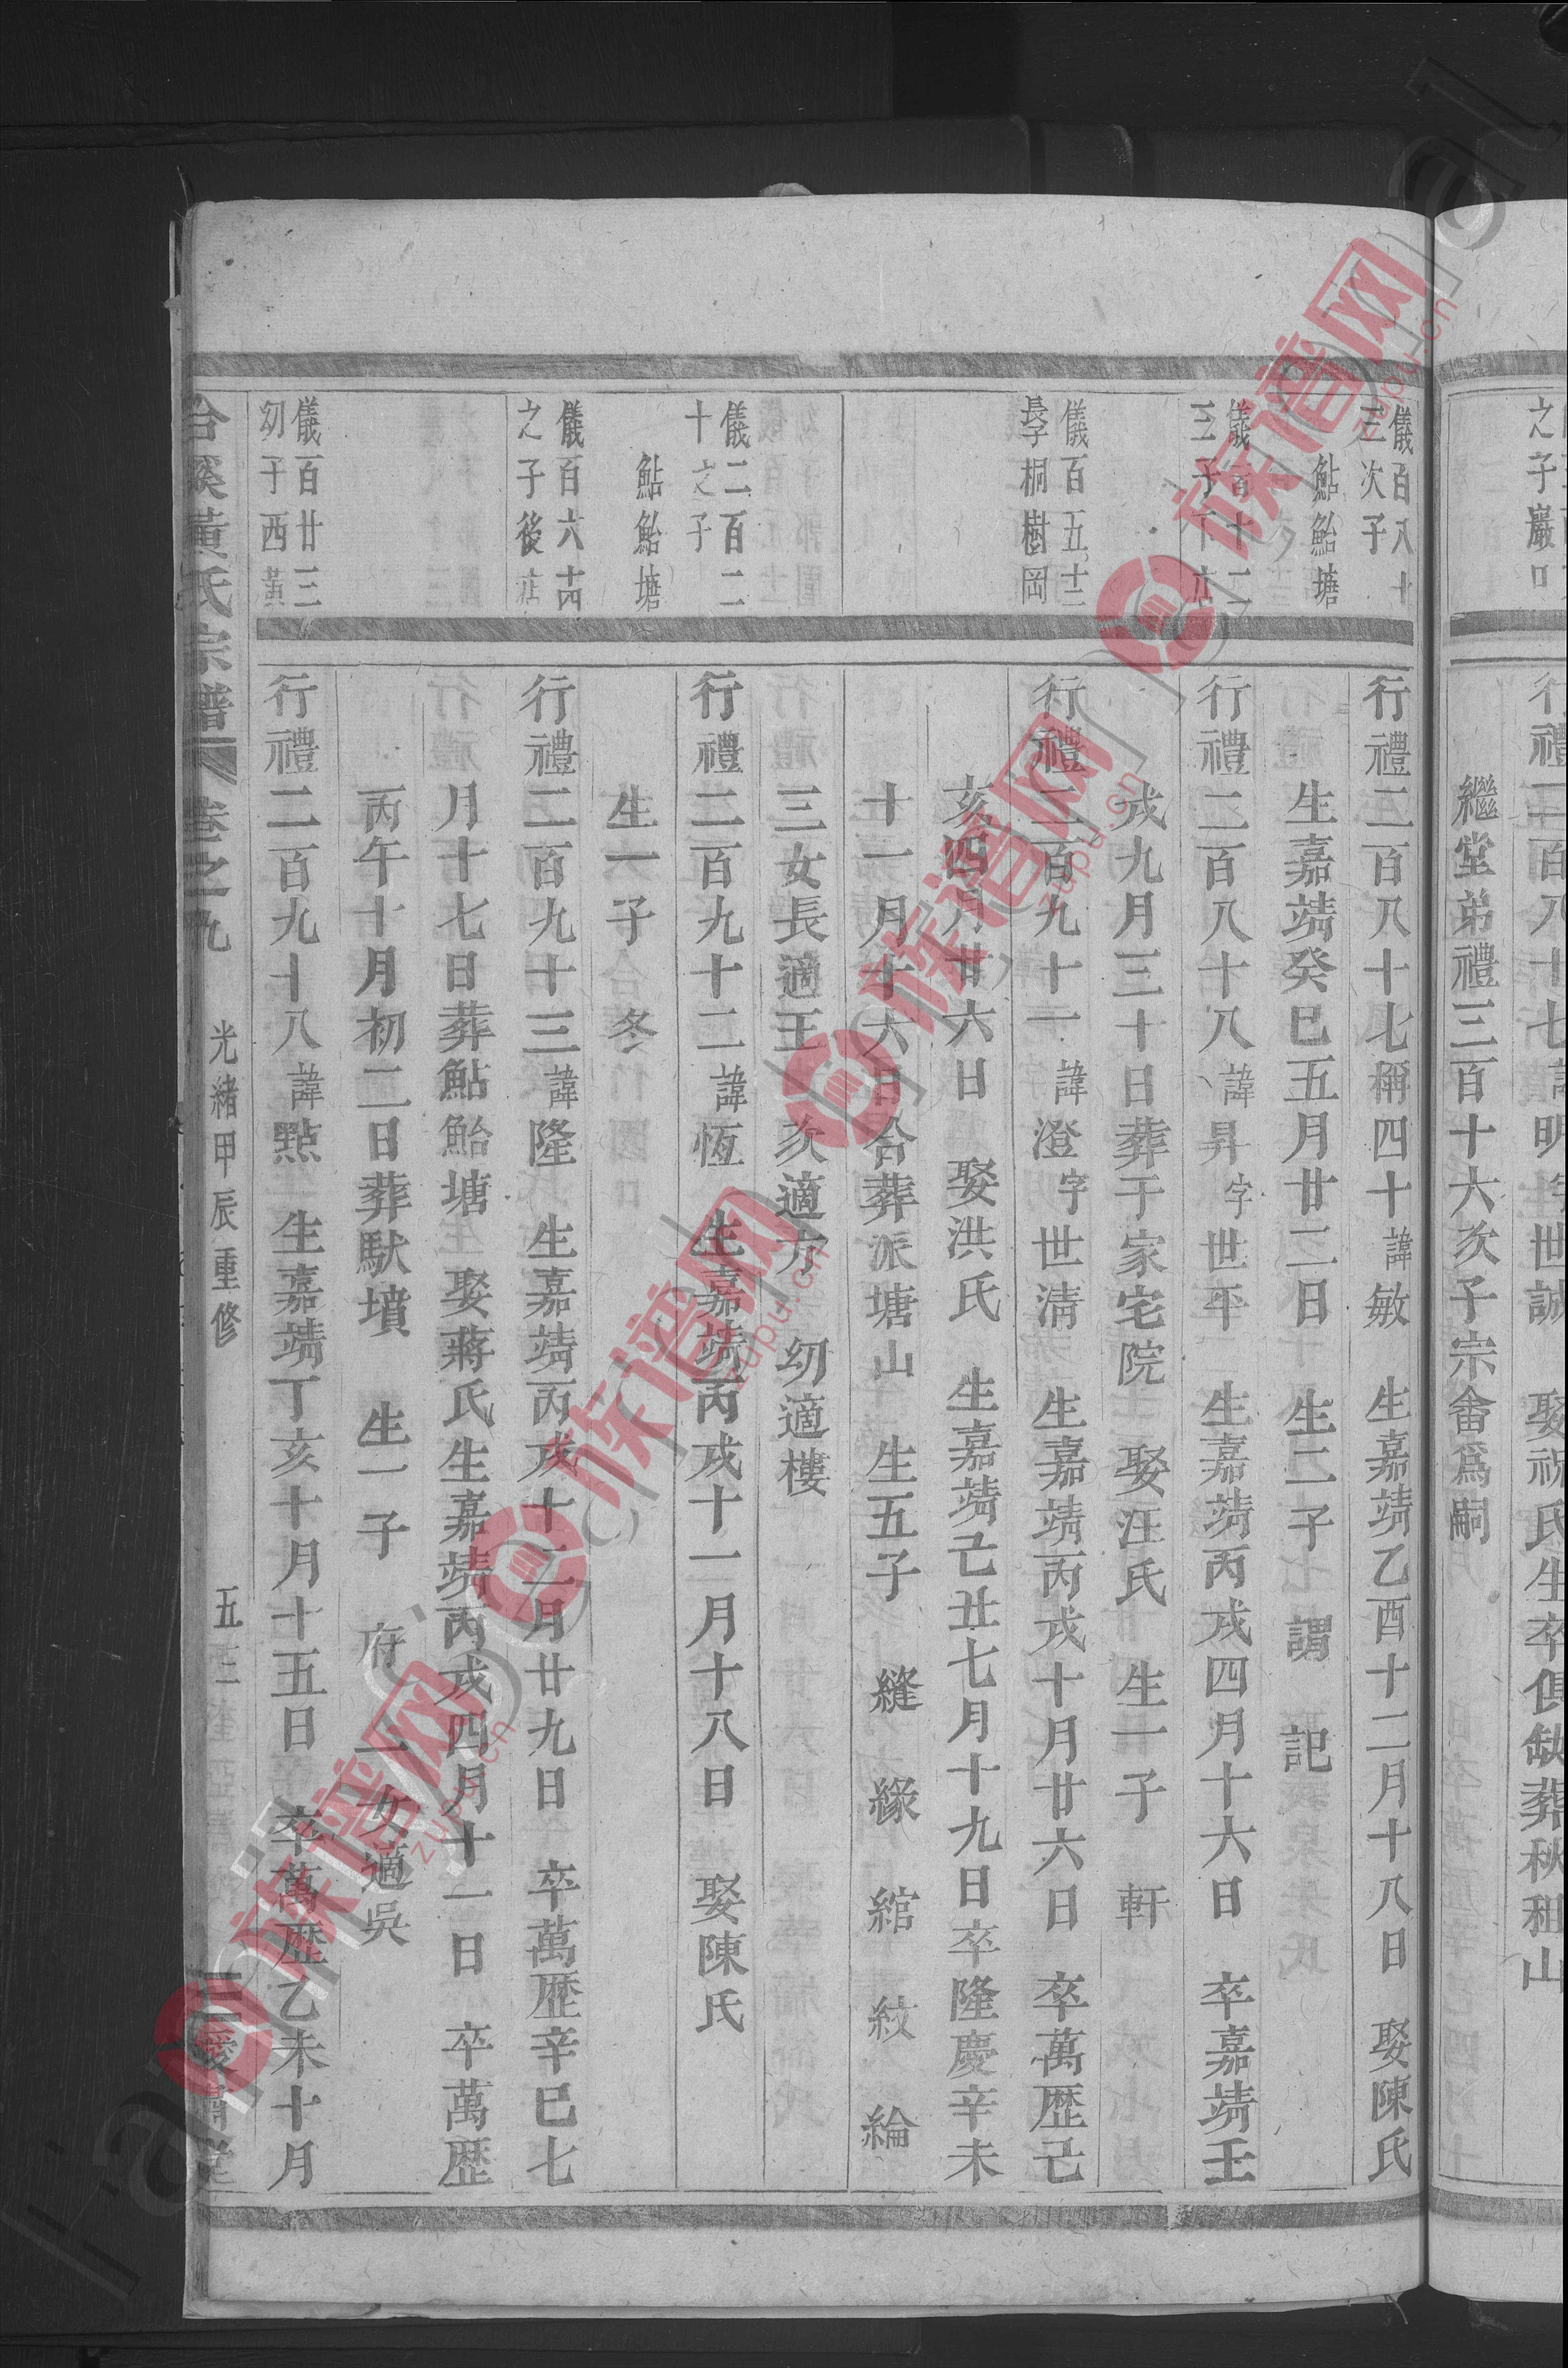 之子巖口
行禮二百八十七諱明字世誠 娶祝氏生卒俱缺葬秋租山
繼堂弟禮三百十六次子宗畬爲嗣
儀百八十
三次子
鮎鮐塘
行禮二百八十七稱四十諱敏 生嘉靖乙酉十二月十八日 娶陳氏
生嘉靖癸巳五月廿二日 生二子 謂 記
儀百十二
三子下店
行禮二百八十八諱昇字世平 生嘉靖丙戌四月十六日 卒嘉靖壬
戌九月三十日葬于家宅院 娶汪氏 生一子 軒
儀百五十三
長子桐樹岡
行禮二百九十一諱澄字世清 生嘉靖丙戌十月廿六日 卒萬歷己
亥四月廿六日 娶洪氏 生嘉靖己丑七月十九日卒隆慶辛未
十一月十六日合葬派塘山 生五子 縫 緣 綰 紋 綸
三女長適王 次適方 幼適樓
儀二百二
十之子
鮎鮐塘
行禮二百九十二諱恆 生嘉靖丙戌十一月十八日 娶陳氏
生一子 冬
儀百六十四
之子後店
行禮二百九十三諱隆 生嘉靖丙戌十二月廿九日 卒萬歷辛巳七
月十七日葬鮎鮐塘 娶蔣氏生嘉靖丙戌四月十一日 卒萬歷
丙午十月初二日葬馱墳 生一子 府 一女適吳
儀百廿三
幼子西黃
行禮二百九十八諱點 生嘉靖丁亥十月十五日 卒萬歷乙未十月
合溪黃氏宗譜 卷之九 光緒甲辰重修 五 三愛肅堂
族谱网
zupu.cn
族谱网
zupu.cn
族谱网
zupu.cn
族谱网
zupu.cn